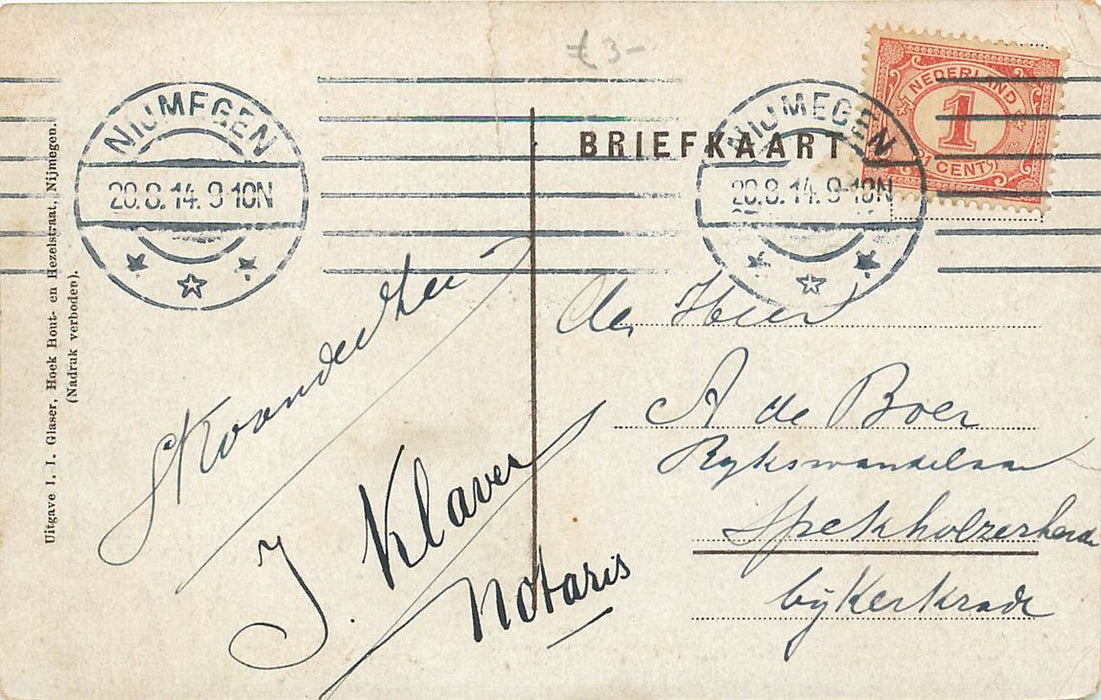 £3-
NIJMEGEN
20.8.14. 9-10N
NIJMEGEN
20.8.14. 9-10N
NEDERLAND
1
1 CENT
BRIEFKAART
Uitgave I. I. Glaser, Hoek Hout- en Hezelstraat, Nijmegen.
(Nadruk verboden).
J. Klaver
Notaris
de Heer
A de Boer
Rykswandelaar
Spekholzerheide
by Kerkrade